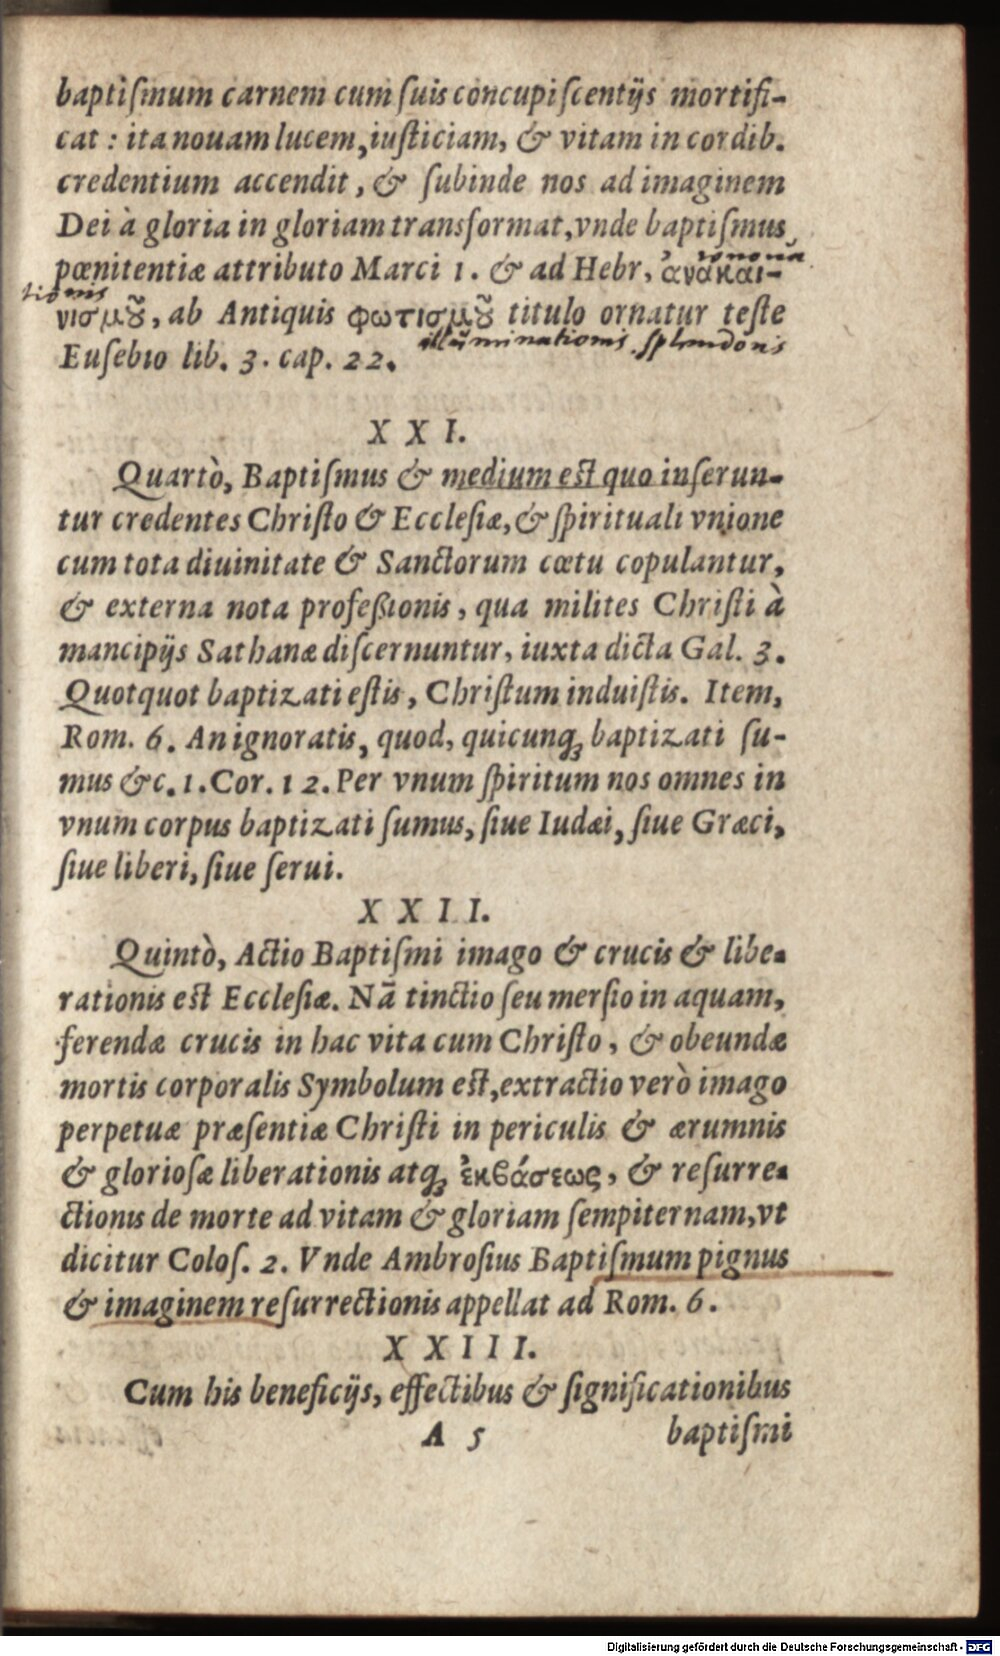 baptiſmum carnem cum ſuis concupiſcentijs mortifi-
cat: ita nouam lucem, iuſticiam, & vitam in cordib.
credentium accendit, & ſubinde nos ad imaginem
Dei à gloria in gloriam transformat, vnde baptiſmus
pœnitentiæ attributo Marci 1. & ad Hebr, ἀνακαι-
tionis
νισμȣ͂, ab Antiquis φωτισμȣ͂ titulo ornatur teſte
illuminationis splendoris
Euſebio lib. 3. cap. 22.
XXI.
Quartò, Baptiſmus & medium est quo inſerun-
tur credentes Chriſto & Eccleſiæ, & ſpirituali vnione
cum tota diuinitate & Sanctorum cœtu copulantur,
& externa nota profeßionis, qua milites Chriſti à
mancipijs Sathanæ diſcernuntur, iuxta dicta Gal. 3.
Quotquot baptizati eſtis, Chriſtum induiſtis. Item,
Rom. 6. An ignoratis, quod, quicunq; baptizati ſu-
mus &c. 1. Cor. 12. Per vnum ſpiritum nos omnes in
vnum corpus baptizati ſumus, ſiue Iudæi, ſiue Græci,
ſiue liberi, ſiue ſerui.
XXII.
Quintò, Actio Baptiſmi imago & crucis & libe-
rationis est Eccleſiæ. Nã tinctio ſeu merſio in aquam,
ferendæ crucis in hac vita cum Chriſto, & obeundæ
mortis corporalis Symbolum est, extractio verò imago
perpetuæ præſentiæ Chriſti in periculis & ærumnis
& glorioſæ liberationis atq; ἐκβάσεως, & reſurre-
ctionis de morte ad vitam & gloriam ſempiternam, vt
dicitur Coloſ. 2. Vnde Ambroſius Baptiſmum pignus
& imaginem reſurrectionis appellat ad Rom. 6.
XXIII.
Cum his beneficijs, effectibus & ſignificationibus
A 5 baptiſmi
Digitalisierung gefördert durch die Deutsche Forschungsgemeinschaft - DFG